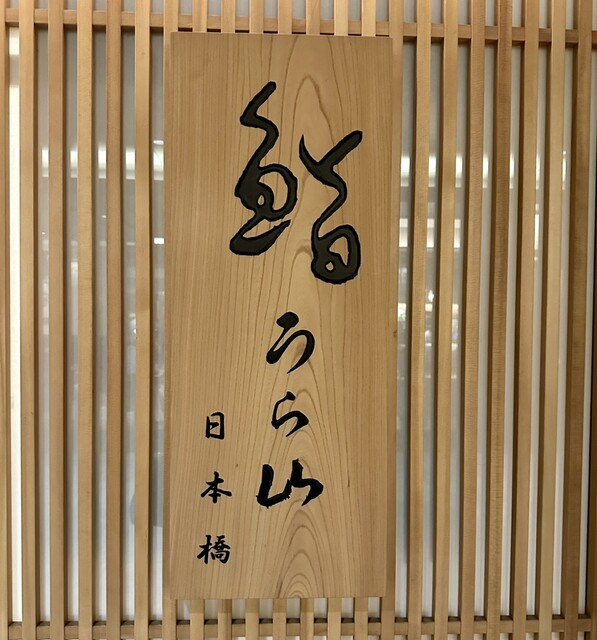 鮨
うら山
日本橋